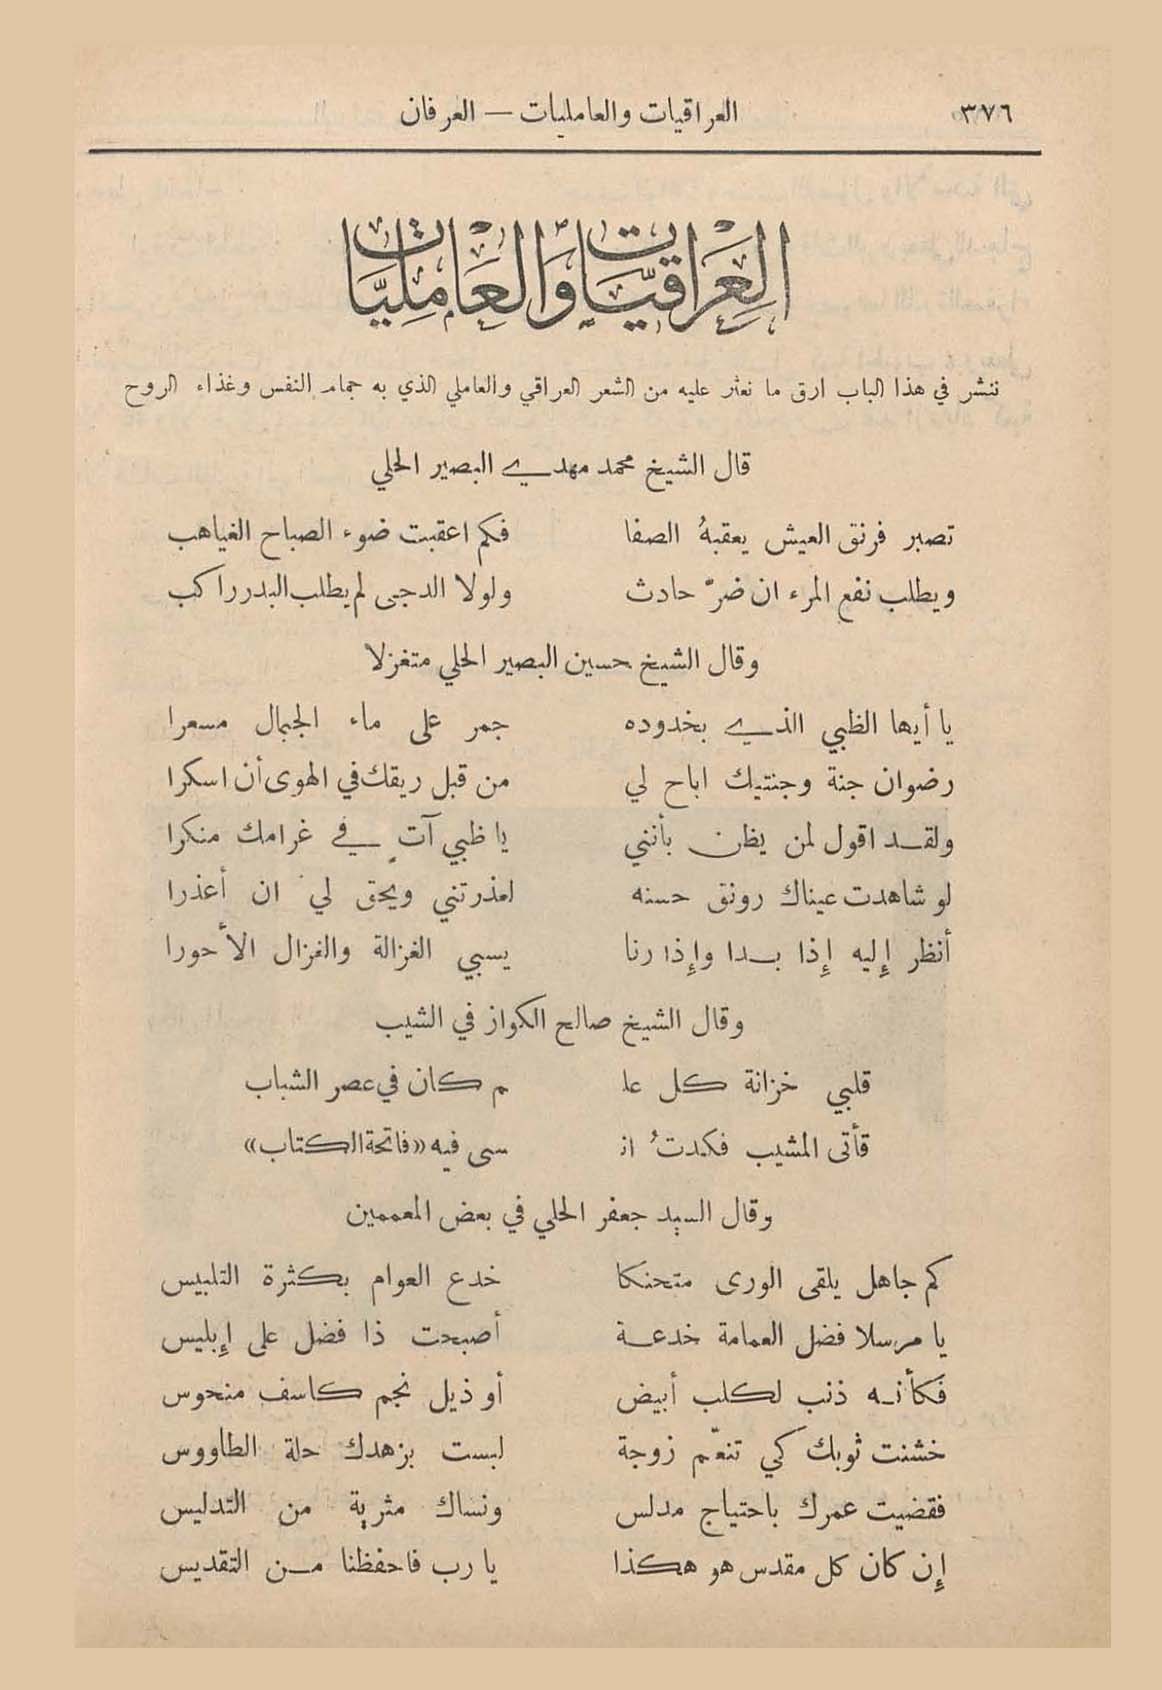 ٣٧٦
العراقيات والعامليات — العرفان
العِرَاقيّات وَالعَامِليَّات
ننشر في هذا الباب ارق ما نعثر عليه من الشعر العراقي والعاملي الذي به جمام النفس وغذاء الروح
قال الشيخ محمد مهدي البصير الحلي
تصبر فرنق العيش يعقبهُ الصفا فكم اعقبت ضوء الصباح الغياهب
ويطلب نفع المرء ان ضرّ حادث ولولا الدجى لم يطلب البدر راكب
وقال الشيخ حسين البصير الحلي متغزلا
يا أيها الظبي الذي بخدوده جمر على ماء الجمال مسعرا
رضوان جنة وجنتيك اباح لي من قبل ريقك في الهوى أن اسكرا
ولقد اقول لمن يظن بأنني يا ظبي آتٍ في غرامك منكرا
لو شاهدت عيناك رونق حسنه لعذرتني ويحق لي ان أعذرا
أنظر إليه إذا بدا وإذا رنا يسبي الغزالة والغزال الأحورا
وقال الشيخ صالح الكواز في الشيب
قلبي خزانة كل عا م كان في عصر الشباب
فأتى المشيب فكدتُ انـ سى فيه «فاتحة الكتاب»
وقال السيد جعفر الحلي في بعض المعممين
كم جاهل يلقى الورى متحنكا خدع العوام بكثرة التلبيس
يا مرسلا فضل العمامة خدعة أصبحت ذا فضل على إبليس
فكأنه ذنب لكلب أبيض أو ذيل نجم كاسف منحوس
خشنت ثوبك كي تنعّم زوجة لبست بزهدك حلة الطاووس
فقضيت عمرك باحتياج مدلس ونساك مثرية من التدليس
إن كان كل مقدس هو هكذا يا رب فاحفظنا من التقديس